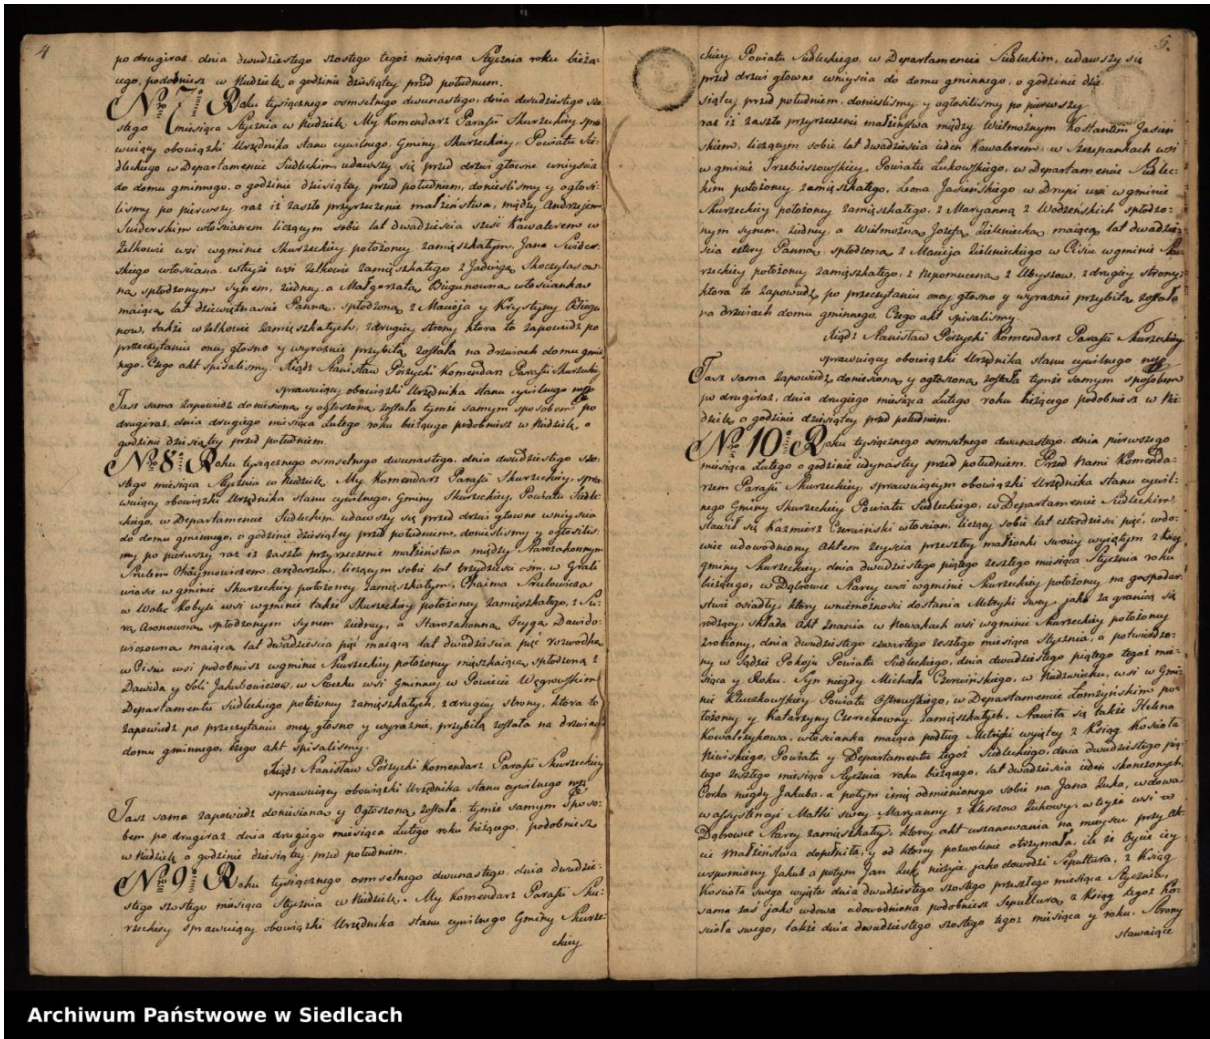 4
po drugi raz, dnia dwudziestego szostego tegoż miesiąca Stycznia roku bieżą-
cego, podobniesz w Niedzielę o godzinie dziesiątey przed południem.
No 7 Roku tysiącznego osmsetnego dwunastego, dnia dwudziestego szo-
stego miesiąca Stycznia w Niedzielę. My Komendarz Parafii Skurzeckiey spra-
wuiący obowiązki Urzędnika stanu cywilnego, Gminy Skurzeckiey, Powiatu Sie-
dleckiego w Departamencie Siedleckim udawszy się przed drzwi głowne wniyscia
do domu gminnego, o godzinie dziesiątey przed południem, donieśliśmy y ogłosi-
liśmy po pierwszy raz iż zaszło przyrzeczenie małżeństwa, między Andrzejem
Świderskim włościanem liczącym sobie lat dwadzieścia sześć Kawalerem w
Żelkowie wsi w gminie Skurzeckiey położoney zamięszkałym, Jana Świder-
skiego włościana, w teyże wsi Żelkowie zamięszkałego z Jadwigą Skoczylasow-
ną spłodzonym synem, z iedney, a Małgorzatą Biegunowną włościanką
maiącą lat dziewiętnaście Panną, spłodzoną z Macieja y Krystyny Biegu
now, także w Żelkowie zamięszkałych, z drugiey strony ktora to zapowiedź po
przeczytaniu oney głosno y wyraźnie przybitą została na drzwiach domu gmin-
nego. Czego akt spisaliśmy. Xiądz Stanisław Pórzycki Komendarz Parafii Skurzeckiey
sprawuiący obowiązki Urzędnika stanu cywilnego mp
Taż sama zapowiedź doniesioną y ogłoszoną została tymże samym sposobem po
drugi raz, dnia drugiego miesiąca Lutego roku bieżącego podobniesz w Niedzielę, o
godzinie dziesiątey przed południem.
No 8 Roku tysiącznego osmsetnego dwunastego, dnia dwudziestego szo-
stego miesiąca Stycznia w Niedzielę. My Komendarz Parafii Skurzeckiey, spra-
wuiący obowiązki Urzędnika stanu cywilnego, Gminy Skurzeckiey, Powiatu Siedle-
ckiego, w Departamencie Siedleckim, udawszy się przed drzwi głowne wniyscia
do domu gminnego, o godzinie dziesiątey przed południem, donieśliśmy y ogłosiliś-
my po pierwszy raz iż zaszło przyrzeczenie małżeństwa między Starozakonnym
Srulem Chaymowiczem arędarzem, liczącym sobie lat trzydzieści osm, w Grali
wiosce w gminie Skurzeckiey położoney zamięszkałym, Chaima Srulowicza
w Woli Kobyli wsi w gminie także Skurzeckiey położoney zamięszkałego, z Su-
rą Aronowną spłodzonym synem z iedney, a Starozakonną Feygą Dawido-
wiczowną maiącą lat dwadzieścia pięć rozwodką
w Cisiu wsi podobniesz w gminie Skurzeckiey położoney mięszkaiącą, spłodzoną z
Dawida y Soli Jakubowiczow, w Stoczku wsi Gminney w Powiecie Węgrowskim
Departamentu Siedleckiego położoney zamięszkałych, z drugiey strony, ktora to
zapowiedź po przeczytaniu oney głosno y wyraźnie, przybitą została na drzwiach
domu gminnego, czego akt spisaliśmy.
Xiądz Stanisław Pórzycki Komendarz Parafii Skurzeckiey
sprawuiący obowiązki Urzędnika stanu cywilnego mp
Taż sama zapowiedź doniesiona y Ogłoszoną została tymże samym sposo-
bem po drugi raz, dnia drugiego miesiąca Lutego roku bieżącego, podobniesz
w Niedzielę o godzinie dziesiątey przed południem.
No 9 Roku tysiącznego osmsetnego dwunastego, dnia dwudzie-
stego szostego miesiąca Stycznia w Niedzielę. My Komendarz Parafii Sku-
rzeckiey sprawuiący obowiązki Urzędnika stanu cywilnego Gminy Skurze-
ckiey
5.
ckiey Powiatu Siedleckiego, w Departamencie Siedleckim, udawszy się
przed drzwi głowne wniyscia do domu gminnego, o godzinie dzie-
siątey przed południem, donieśliśmy y ogłosiliśmy po pierwszy
raz iż zaszło przyrzeczenie małżeństwa między Wielmożnym Kostantim Jasień-
skim, liczącym sobie lat dwadzieścia ieden Kawalerem, w Szczepankach wsi
w gminie Trzebieszowskiey, Powiatu Łukowskiego, w Departamencie Siedlec-
kim położoney zamięszkałego, Leona Jasieńskiego w Drupi wsi w gminie
Skurzeckiey położoney zamięszkałego, z Maryanną z Wodzeńskich spłodzo-
nym synem, z iedney, a Wielmożną Jozefą Zieleniecką, maiącą lat dwadzie-
ścia cztery Panną, spłodzoną z Macieja Zielenieckiego w Cisiu w gminie Sku-
rzeckiey położoney zamięszkałego, z Nepomuceną z Ubyszow, z drugiey strony,
ktora to zapowiedź po przeczytaniu oney głosno y wyraźnie przybitą została
na drzwiach domu gminnego. Czego akt spisaliśmy.
Xiądz Stanisław Pórzycki Komendarz Parafii Skurzeckiey
sprawuiący obowiązki Urzędnika stanu cywilnego mp
Taż sama zapowiedź doniesioną y ogłoszoną została tymże samym sposobem
po drugi raz, dnia drugiego miesiąca Lutego roku bieżącego podobniesz w Nie-
dzielę o godzinie dziesiątey przed południem.
No 10 Roku tysiącznego osmsetnego dwunastego, dnia pierwszego
miesiąca Lutego o godzinie iedynastey przed południem. Przed Nami Komenda-
rzem Parafii Skurzeckiey sprawuiącym obowiązki Urzędnika stanu cywil-
nego Gminy Skurzeckiey Powiatu Siedleckiego, w Departamencie Siedleckim,
stawił się Kazmierz Czerwiński włościan, liczący sobie lat czterdzieści pięć, wdo-
wiec udowodniony Aktem zeyscia przeszłey małżonki swoiey wyiętym z ksiąg
gminy Skurzeckiey dnia dwudziestego piątego zeszłego miesiąca Stycznia roku
bieżącego, w Dąbrowce Starey wsi w gminie Skurzeckiey położoney na gospodar-
stwie osiadły, ktory w niemożności dostania Metryki swey, jako za granicą się
rodzący, składa Akt Znania w Nowakach wsi w gminie Skurzeckiey położoney
zrobiony, dnia dwudziestego czwartego zeszłego miesiąca Stycznia, a potwierdzo-
ny w Sądzie Pokoju Powiatu Siedleckiego, dnia dwudziestego piątego tegoż mie-
siąca y Roku. Syn niegdy Michała Czerwińskiego, w Niedzwiecku, wsi w Gmi-
nie Kluczkowskiey Powiatu Ostrowskiego, w Departamencie Łomżyńskim po-
łożoney y Katarzyny zamięszkałych. Stawiła się także Helena
Kowalczykowa, włościanka maiąca podług Metryki wyiętey z Ksiąg Kościoła
Niwiskiego, Powiatu y Departamentu tegoż Siedleckiego, dnia dwudziestego pią-
tego zeszłego miesiąca Stycznia roku bieżącego, lat dwadzieścia ieden skonczonych,
Corka niegdy Jakuba, a potym imię odmienionego sobie na Jana Żuka, wdowa
w assystencyi Matki swey Maryanny z Kleszow Żukowey, w teyże wsi w
Dąbrowce Starey zamięszkałey, ktorey akt uszanowania na mieyscu przy Ak-
cie małżeństwa dopełniła, y od ktorey pozwolenie otrzymała, ile że Oyciec iey
wspomniony Jakub a potym Jan Żuk nieżyie, jako dowodzi Sepultura, z Ksiąg
Kościoła swego wyięta dnia dwudziestego szostego przeszłego miesiąca Stycznia,
sama zaś jako wdowa udowodniona podobniesz Sepulturą z Ksiąg tegoż Ko-
ścioła swego, także dnia dwudziestego szostego tegoż miesiąca y roku. Strony
stawaiące
Archiwum Państwowe w Siedlcach